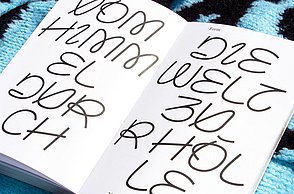 VOM
HIMM
EL
DUR
CH
DIE
WELT
ZU
R HÖL
LE